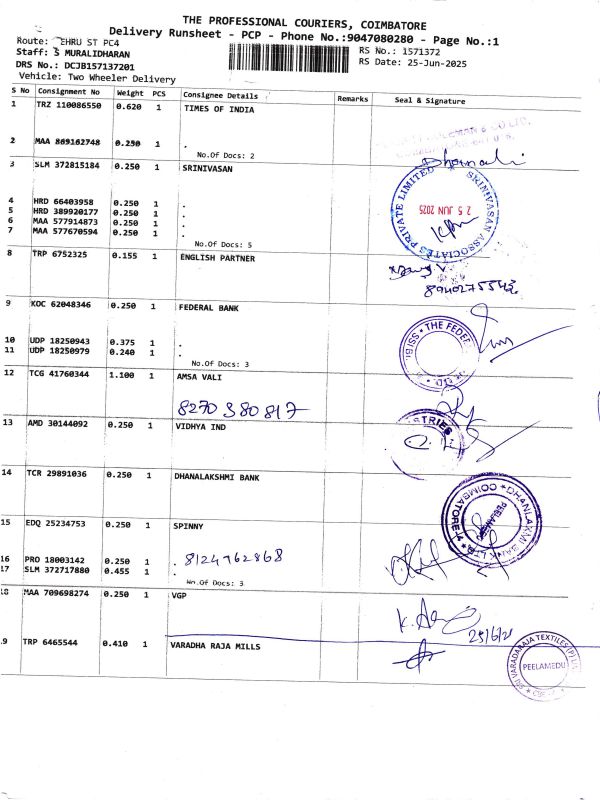 THE PROFESSIONAL COURIERS, COIMBATORE
Delivery Runsheet - PCP - Phone No.:9047080280 - Page No.:1
Route: EHRU ST PC4
Staff: S MURALIDHARAN RS No.: 1571372
DRS No.: DCJB157137201 RS Date: 25-Jun-2025
Vehicle: Two Wheeler Delivery
S No Consignment No Weight PCS Consignee Details Remarks Seal & Signature
1 TRZ 110086550 0.620 1 TIMES OF INDIA
2 MAA 869162748 0.250 1 .
No.Of Docs: 2
3 SLM 372815184 0.250 1 SRINIVASAN
SRINIVASAN ASSOCIATES PRIVATE LIMITED
25 JUN 2025
4 HRD 66403958 0.250 1 .
5 HRD 389920177 0.250 1 .
6 MAA 577914873 0.250 1 .
7 MAA 577670594 0.250 1 .
No.Of Docs: 5
8 TRP 6752325 0.155 1 ENGLISH PARTNER
9 KOC 62048346 0.250 1 FEDERAL BANK
10 UDP 18250943 0.375 1 .
11 UDP 18250979 0.240 1 .
No.Of Docs: 3
12 TCG 41760344 1.100 1 AMSA VALI
8270380817
13 AMD 30144092 0.250 1 VIDHYA IND
14 TCR 29891036 0.250 1 DHANALAKSHMI BANK
DHANLAXMI BANK LTD. COIMBATORE
15 EDQ 25234753 0.250 1 SPINNY
16 PRO 18003142 0.250 1 . 8124962868
17 SLM 372717880 0.455 1 .
No.Of Docs: 3
18 MAA 709698274 0.250 1 VGP
19 TRP 6465544 0.410 1 VARADHA RAJA MILLS
SRI VARADARAJA TEXTILES (P) LTD
PEELAMEDU